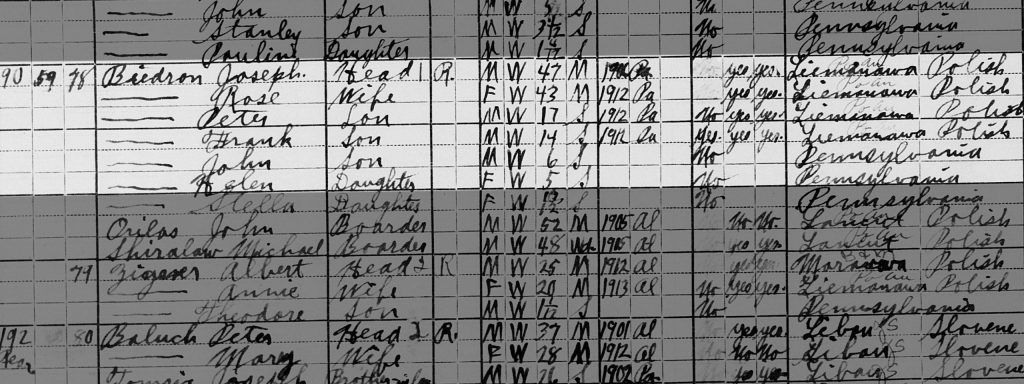 John Son M W 5 S No Pennsylvania
Stanley Son M W S No Pennsylvania
Pauline Daughter M W S No Pennsylvania
90 59 78 Biedron Joseph. Head 1 R. M W 47 M Pa yes yes. Liemanawa Polish
Rose Wife F W 43 M 1912 Pa yes yes. Liemanawa Polish
Peter Son M W 17 S 1912 Pa No yes yes. Liemanawa Polish
Frank Son M W 14 S 1912 Pa Yes yes yes Liemanawa Polish
John Son M W 6 S No Pennsylvania
Helen Daughter F W 5 S No Pennsylvania
Stella Daughter F W S No Pennsylvania
Crilas John Boarder M W 52 M 1905 Al No No. Polish
Michael Boarder M W 48 Wd. 1905 Al yes yes Polish
79 Albert Head 2 R M W 25 M 1912 Al yes yes Polish
Annie Wife F W 20 M 1913 Al No yes yes. Liemanawa Polish
Theodore Son M W S No Pennsylvania
192 80 Baluch Peter Head 2 R. M W 37 M 1901 al yes yes. Libau Slovene
Rear Mary Wife F W 28 M 1912 Al No No Libau Slovene
Joseph M W 26 S 1902 Pa yes yes Libau Slovene